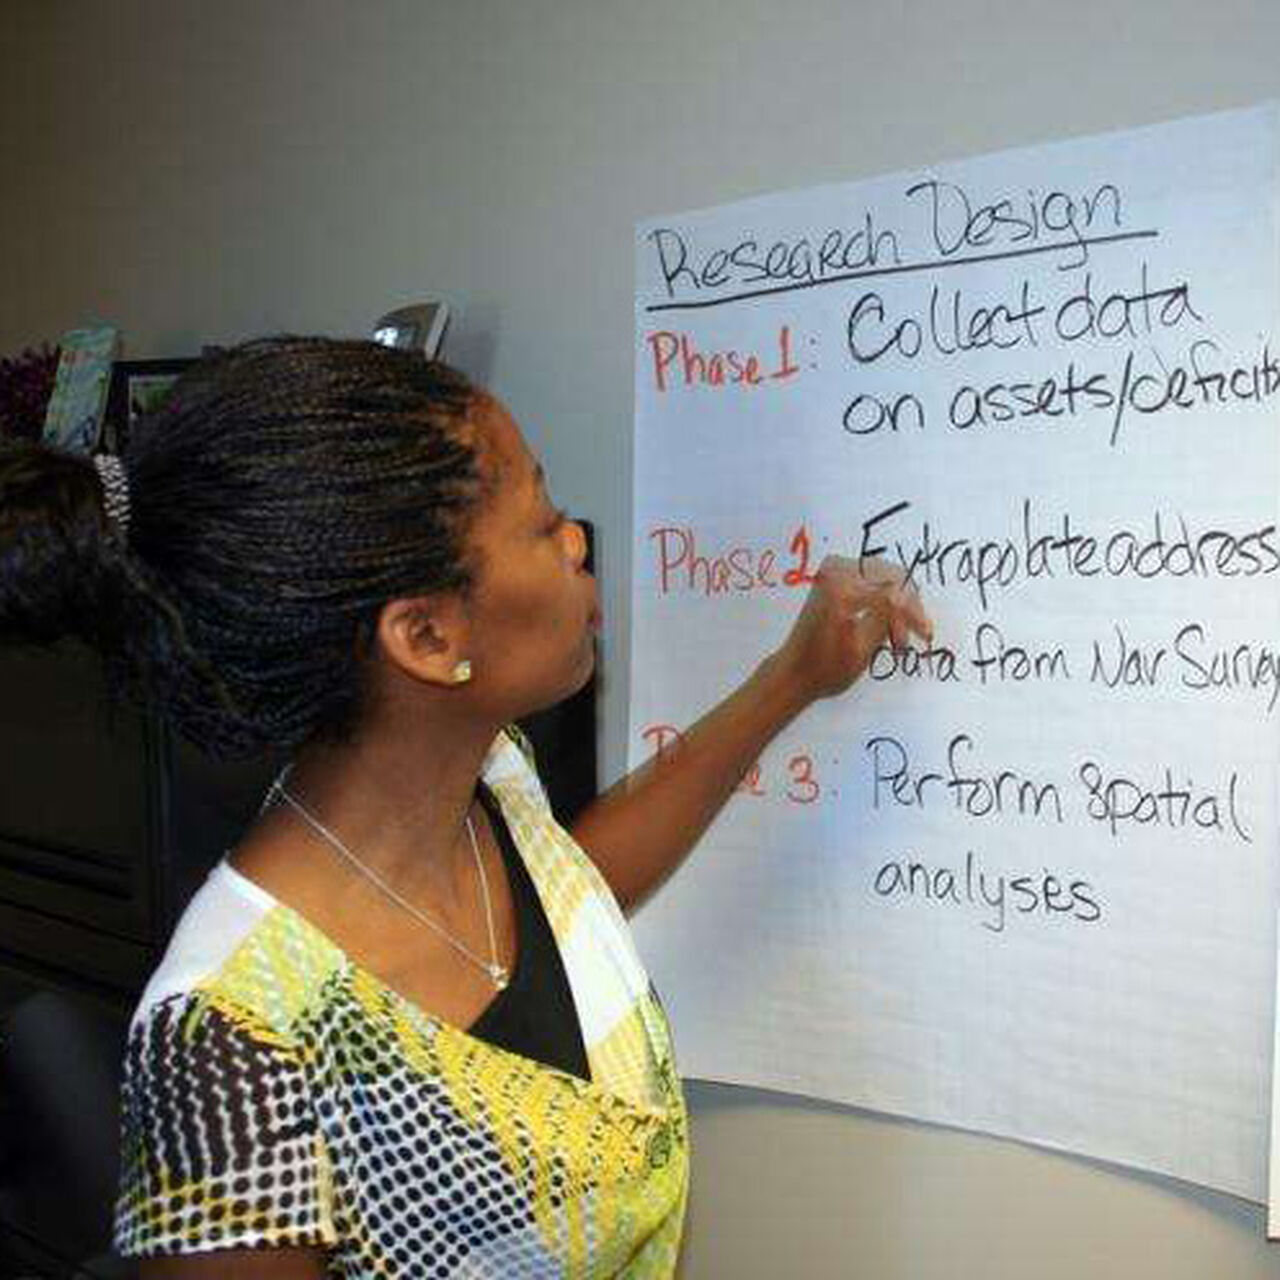 Research Design
Phase 1: Collect data
on assets/deficits
Phase 2: Extrapolate address
data from Nav Survey
3: Perform spatial
analyses